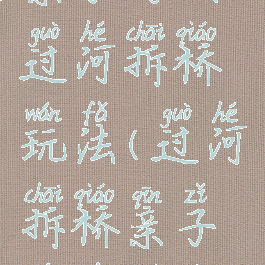 guò hé chāi qiáo
过河拆桥
wán fǎ guò hé
玩法(过河
chāi qiáo qīn zǐ
拆桥亲子